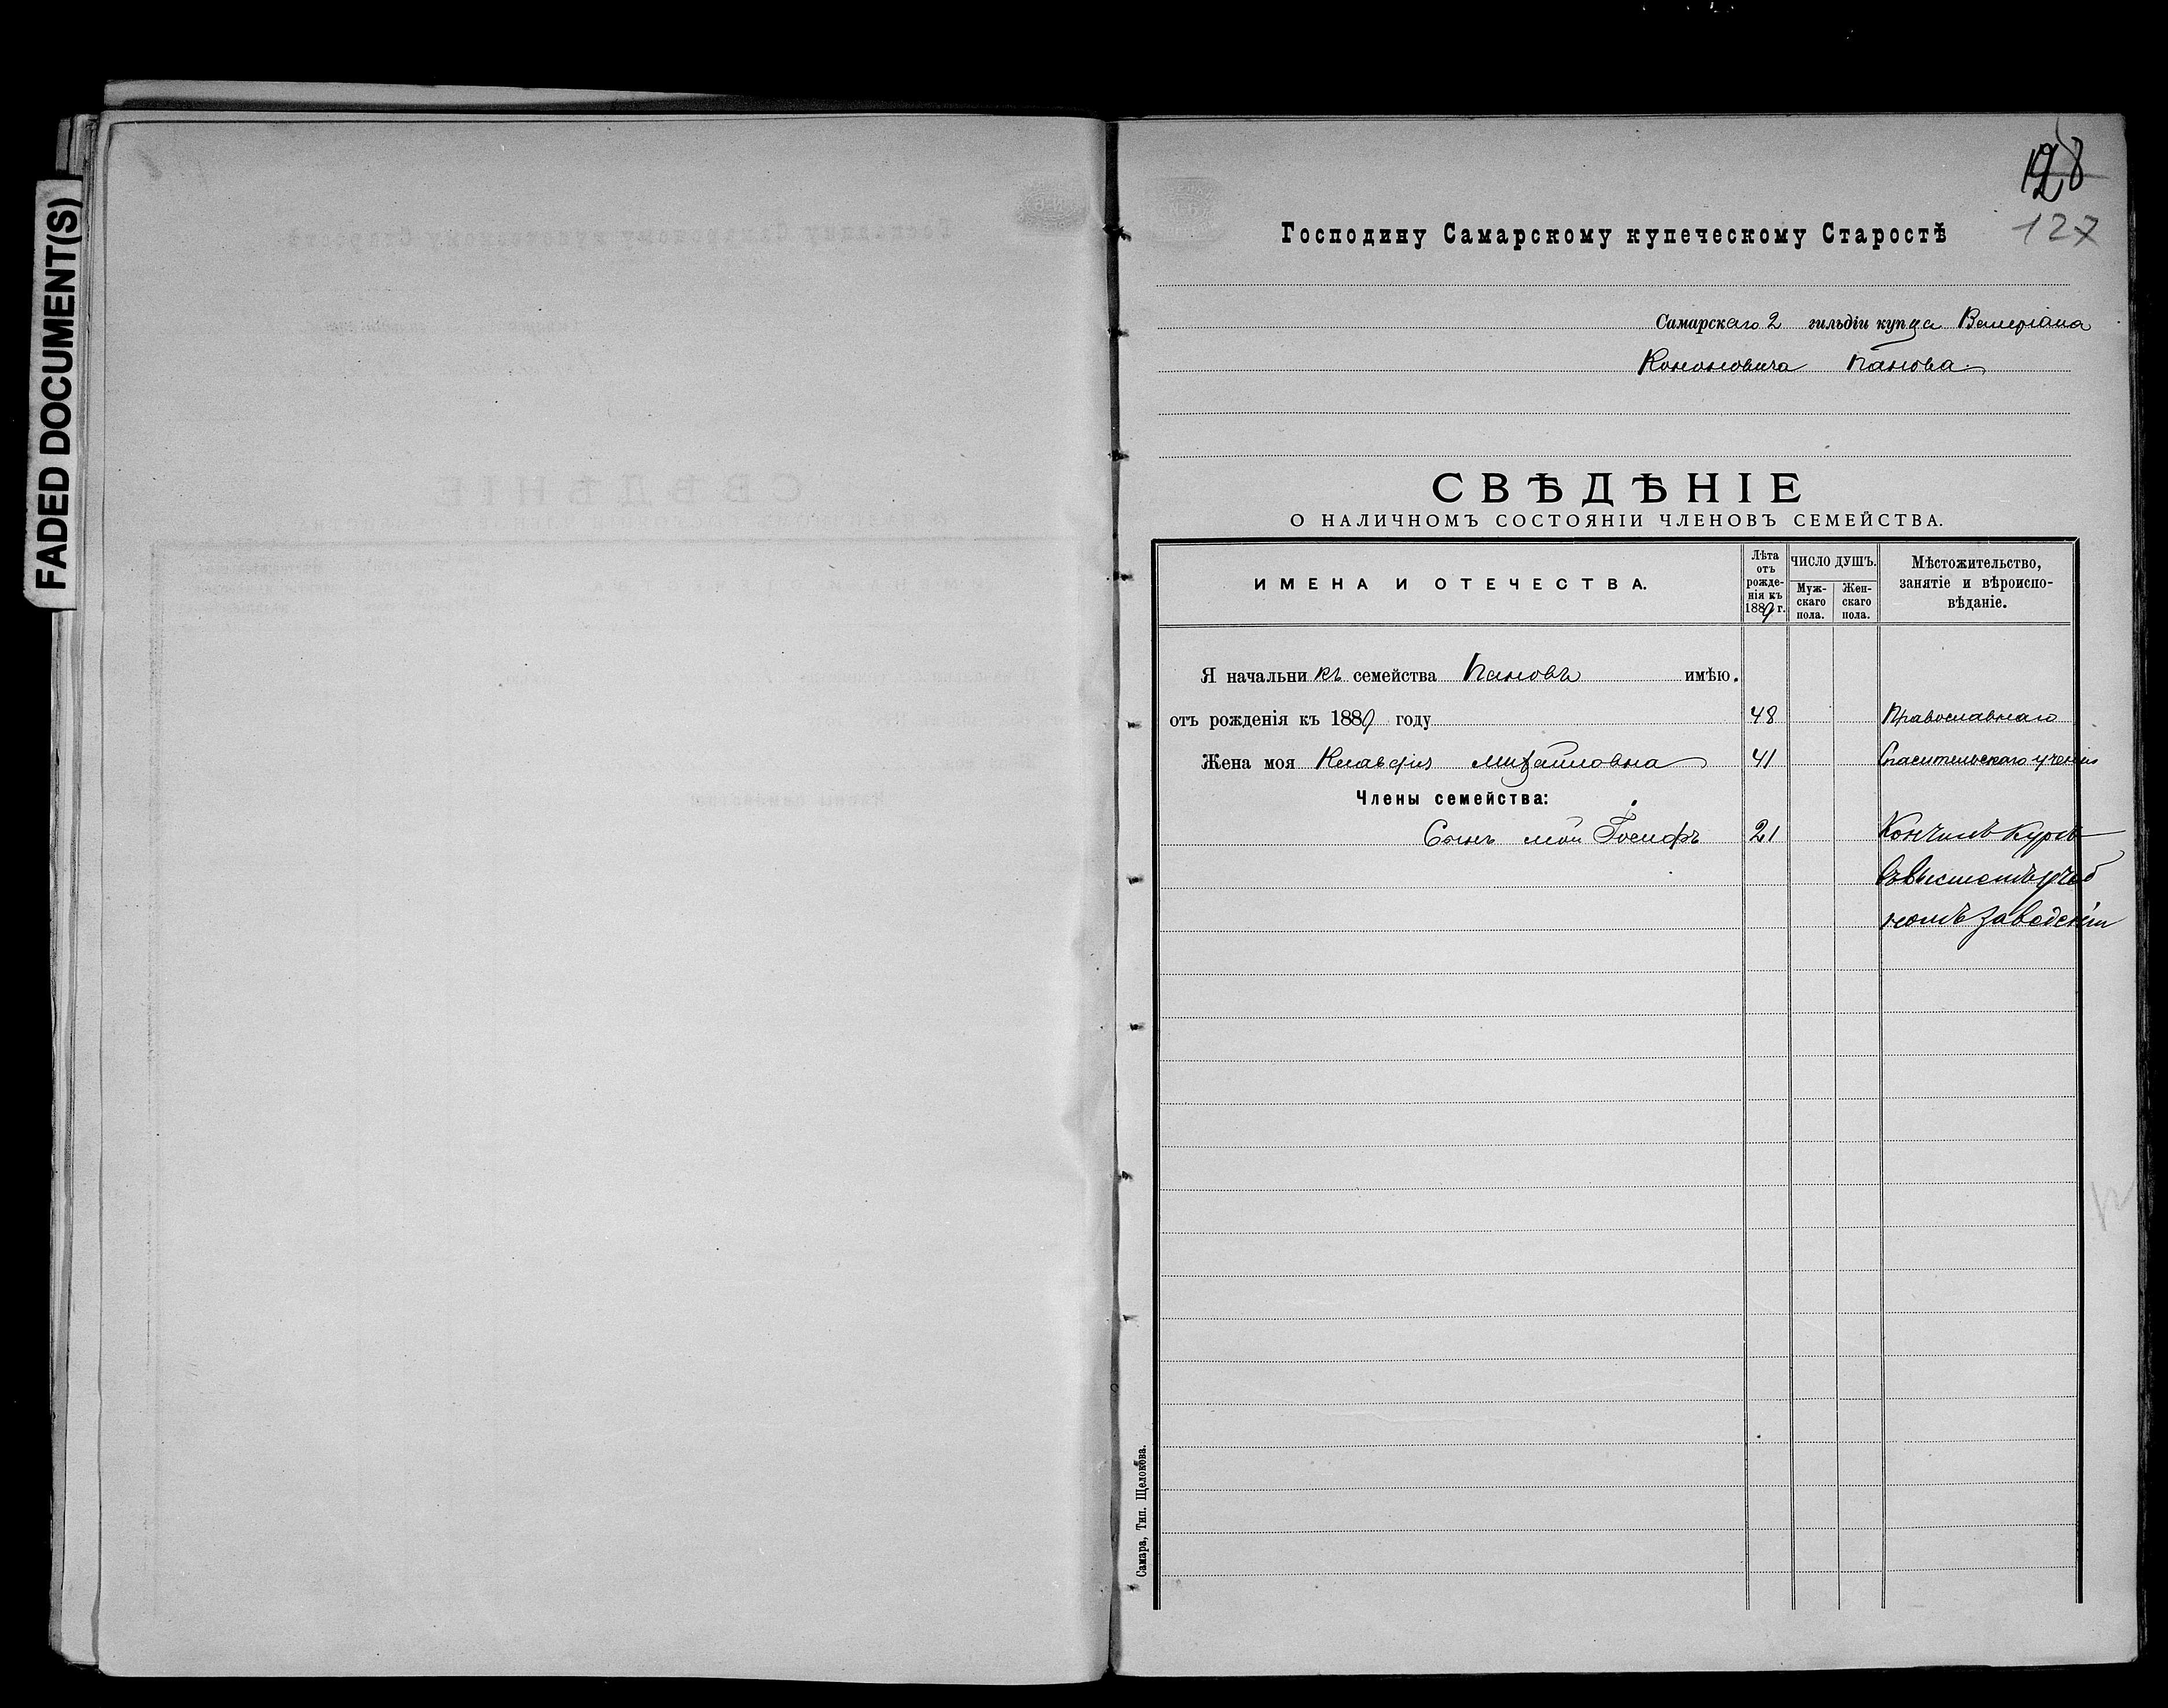 FADED DOCUMENT(S)
128
127
Господину Самарскому купеческому Старостѣ
Самарскаго 2 гильдіи купца Валеріана
Кононовича Панова.
СВѢДѢНІЕ
О НАЛИЧНОМЪ СОСТОЯНІИ ЧЛЕНОВЪ СЕМЕЙСТВА.
ИМЕНА И ОТЕЧЕСТВА.
Лѣта
отъ
рожде-
нія къ
1889 г.
ЧИСЛО ДУШЪ.
Муж-
скаго
пола.
Жен-
скаго
пола.
Мѣстожительство,
занятіе и вѣроиспо-
вѣданіе.
Я начальникъ семейства Пановъ имѣю.
отъ рожденія къ 1889 году 48 Православнаго
Жена моя Клавдія Михайловна 41 Спасительскаго ученія
Члены семейства:
Сынъ мой Іосифъ 21 Кончилъ курсъ
въ высшемъ учеб
номъ заведеніи
Самара, Тип. Щелокова.